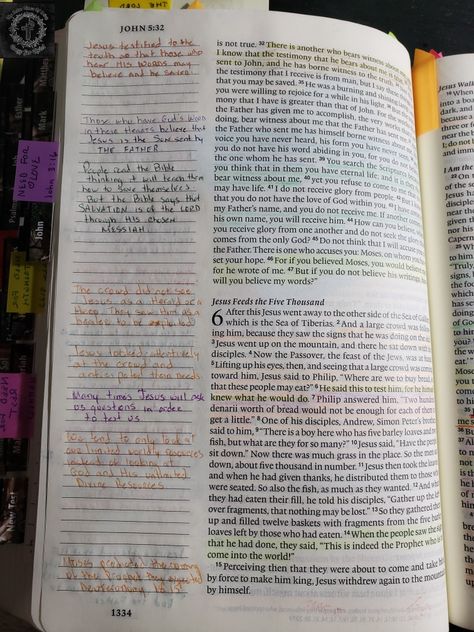 JOHN 5:32
Jesus testified to the
truth so that those who
hear His words may
believe and be saved.
Those who have God's Word
in these hearts believe that
Jesus is the Son sent by
THE FATHER
People read the Bible
thinking it will teach them
how to save themselves.
But the Bible says that
SALVATION is of the LORD
through His chosen
MESSIAH
The crowd did not see
Jesus as a
They saw Him as a
healer to be exploited
Jesus looked
at the crowd and
their needs
Many times Jesus will ask
us questions in order
to test us
We tend to only look at
our limited worldly resources
instead of looking at
God and His unlimited
Divine Resources
Moses predicted the coming
of the Prophet they expected
Deuteronomy 18:15
1334
is not true. 32 There is another who bears witness
I know that the testimony that he bears about me is
sent to John, and he has borne witness to the truth.
the testimony that I receive is from man, but I say
that you may be saved. 35 He was a burning and shining
you were willing to rejoice for a while in his light. 36
mony that I have is greater than that of John. For the
the Father has given me to accomplish, the very works
doing, bear witness about me that the Father has sent
the Father who sent me has himself borne witness about
voice you have never heard, his form you have never
you do not have his word abiding in you, for you do
the one whom he has sent. 39 You search the Scriptures
you think that in them you have eternal life; and it is
bear witness about me, 40 yet you refuse to come to me
may have life. 41 I do not receive glory from people. 42 But I
that you do not have the love of God within you. 43 I have
my Father's name, and you do not receive me. If another
his own name, you will receive him. 44 How can you believe,
receive glory from one another and do not seek the glory
comes from the only God? 45 Do not think that I will accuse
the Father. There is one who accuses you: Moses, on whom you
set your hope. 46 For if you believed Moses, you would believe
for he wrote of me. 47 But if you do not believe his writings,
will you believe my words?"
Jesus Feeds the Five Thousand
6 After this Jesus went away to the other side of the Sea of
which is the Sea of Tiberias. 2 And a large crowd was
ing him, because they saw the signs that he was doing on the
3 Jesus went up on the mountain, and there he sat down with
disciples. 4 Now the Passover, the feast of the Jews, was at
5 Lifting up his eyes, then, and seeing that a large crowd was
toward him, Jesus said to Philip, "Where are we to buy
that these people may eat?" 6 He said this to test him, for he himself
knew what he would do. 7 Philip answered him, "Two hundred
denarii worth of bread would not be enough for each of them
get a little." 8 One of his disciples, Andrew, Simon Peter's brother,
said to him, 9 "There is a boy here who has five barley loaves and
fish, but what are they for so many?" 10 Jesus said, "Have the people
sit down." Now there was much grass in the place. So the men
down, about five thousand in number. 11 Jesus then took the loaves,
and when he had given thanks, he distributed them to those who
were seated. So also the fish, as much as they wanted. 12 And when
they had eaten their fill, he told his disciples, "Gather up the left
over fragments, that nothing may be lost." 13 So they gathered them
up and filled twelve baskets with fragments from the five barley
loaves left by those who had eaten. 14 When the people saw the sign
that he had done, they said, "This is indeed the Prophet who is
come into the world!"
15 Perceiving then that they were about to come and take him
by force to make him king, Jesus withdrew again to the mountain
by himself.
NEED FOR
LOVE
John 3:16
John